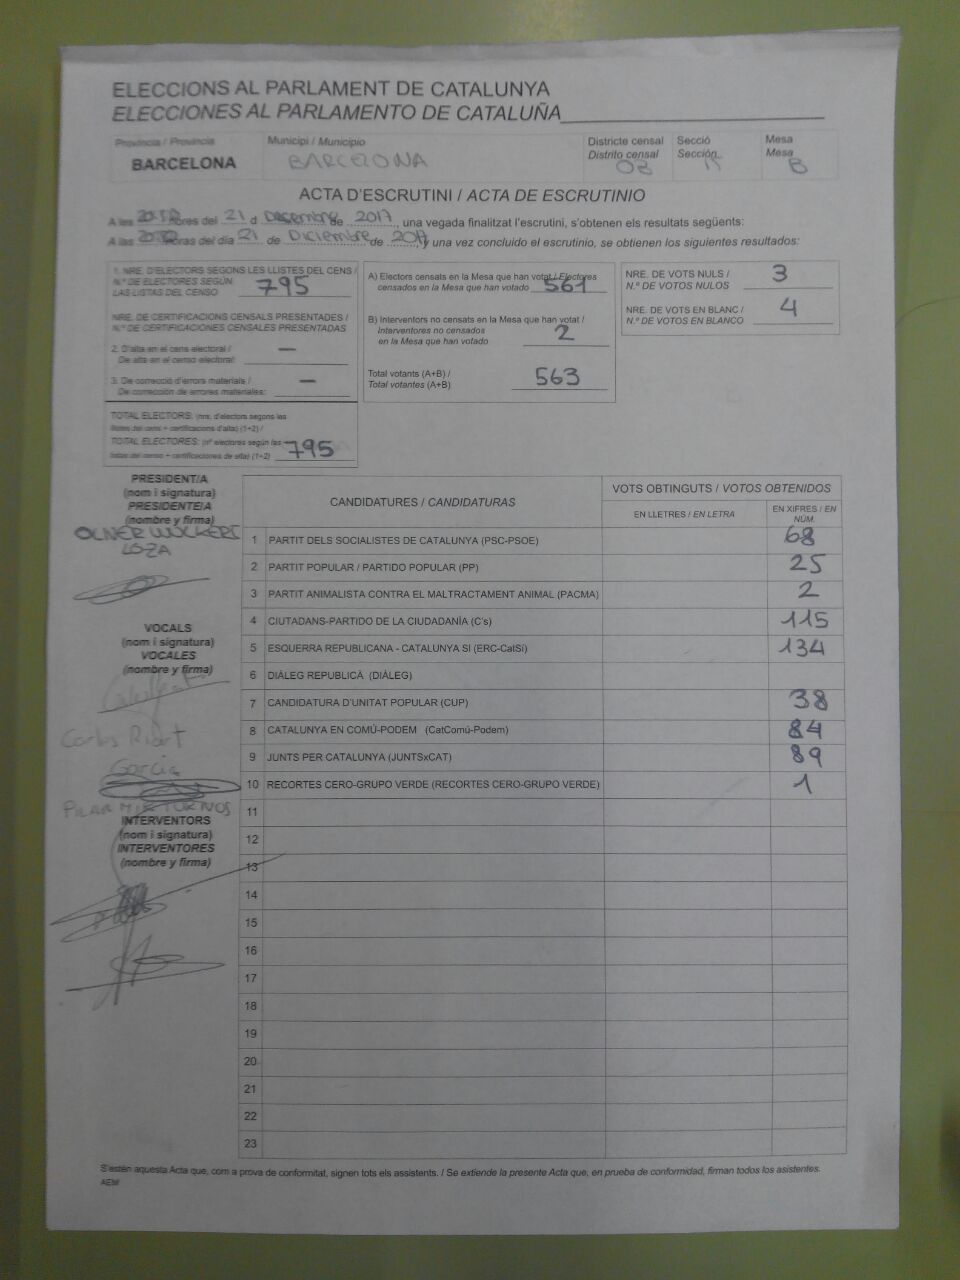 ELECCIONS AL PARLAMENT DE CATALUNYA
ELECCIONES AL PARLAMENTO DE CATALUÑA
Província / Provincia
BARCELONA
Municipi / Municipio
BARCELONA
Districte censal
Distrito censal
Secció
Sección
Mesa
Mesa
B
ACTA D'ESCRUTINI / ACTA DE ESCRUTINIO
A les hores del 21 d Desembre de 2017, una vegada finalitzat l'escrutini, s'obtenen els resultats següents:
A las horas del día 21 de Diciembre de 2017, una vez concluido el escrutinio, se obtienen los siguientes resultados:
1. NRE. D'ELECTORS SEGONS LES LLISTES DEL CENS /
N.º DE ELECTORES SEGÚN
LAS LISTAS DEL CENSO 795
NRE. DE CERTIFICACIONS CENSALS PRESENTADES /
N.º DE CERTIFICACIONES CENSALES PRESENTADAS
2. D'alta en el cens electoral / —
De alta en el censo electoral:
3. De correcció d'errors materials / —
De corrección de errores materiales:
TOTAL ELECTORS: (nre. d'electors segons les
llistes del cens + certificacions d'alta) (1+2) /
TOTAL ELECTORES: (nº electores según las
listas del censo + certificaciones de alta) (1+2) 795
A) Electors censats en la Mesa que han votat / Electores
censados en la Mesa que han votado 561
B) Interventors no censats en la Mesa que han votat /
Interventores no censados
en la Mesa que han votado 2
Total votants (A+B) /
Total votantes (A+B) 563
NRE. DE VOTS NULS /
N.º DE VOTOS NULOS 3
NRE. DE VOTS EN BLANC /
N.º DE VOTOS EN BLANCO 4
PRESIDENT/A
(nom i signatura)
PRESIDENTE/A
(nombre y firma)
LOZA
VOCALS
(nom i signatura)
VOCALES
(nombre y firma)
Carlos Riart
Garcia
PILAR MIR TORNOS
INTERVENTORS
(nom i signatura)
INTERVENTORES
(nombre y firma)
CANDIDATURES / CANDIDATURAS
VOTS OBTINGUTS / VOTOS OBTENIDOS
EN LLETRES / EN LETRA
EN XIFRES / EN
NÚM.
1 PARTIT DELS SOCIALISTES DE CATALUNYA (PSC-PSOE) 68
2 PARTIT POPULAR / PARTIDO POPULAR (PP) 25
3 PARTIT ANIMALISTA CONTRA EL MALTRACTAMENT ANIMAL (PACMA) 2
4 CIUTADANS-PARTIDO DE LA CIUDADANÍA (C's) 115
5 ESQUERRA REPUBLICANA - CATALUNYA SÍ (ERC-CatSí) 134
6 DIÀLEG REPUBLICÀ (DIÀLEG)
7 CANDIDATURA D'UNITAT POPULAR (CUP) 38
8 CATALUNYA EN COMÚ-PODEM (CatComú-Podem) 84
9 JUNTS PER CATALUNYA (JUNTSxCAT) 89
10 RECORTES CERO-GRUPO VERDE (RECORTES CERO-GRUPO VERDE) 1
11
12
13
14
15
16
17
18
19
20
21
22
23
S'estén aquesta Acta que, com a prova de conformitat, signen tots els assistents. / Se extiende la presente Acta que, en prueba de conformidad, firman todos los asistentes.